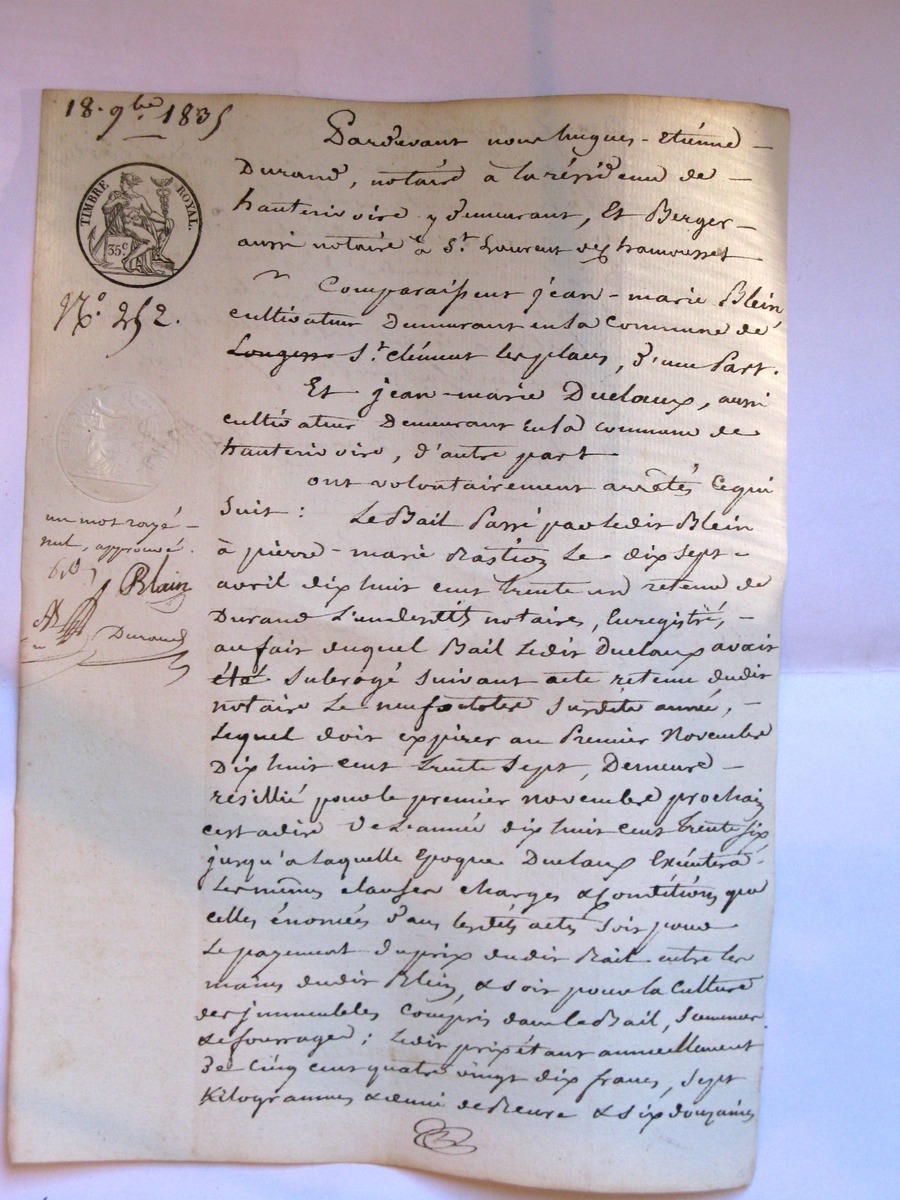 18. 9bre 1835
TIMBRE ROYAL.
35 c.
N.o 252.
Pardevant nous hugues-étiénne
Durand, notaire à la résidence de
hauterivoire y demeurant, Et Berger
aussi notaire à St. Laurent de chamousset
Comparaissent jean-marie Blein
cultivateur Demeurant en la Commune de
Longess St. clément les places, d'une Part.
Et jean-marie Duclaux, aussi
cultivateur Demeurant En la commune de
hauterivoire, d'autre part
ont volontairement arrêtés Ce qui
Suit : Le Bail Passé par ledit Blein
à pierre-marie le dix Sept
avril dix huit cent trente un retenu de
Durand L'un desdits notaires, Enregistré,
au fait duquel Bail Ledit Duclaux avait
été Subrogé Suivant acte retenu dudit
notaire Le neuf octobre Susdite année,
Lequel doit expirer au Premier Novembre
Dix huit cent trente Sept, Demeure
résillié pour le premier novembre prochain
c'est adire De L'année dix huit cent trente six
jusqu'a laquelle Epoque Duclaux Exécutera
Les mêmes clauses charges & Conditions que
celles énoncées dans lesdits actes Soit pour
Le payement du prix dudit Bail entre les
mains dudit Blein, & soit pour la Culture
des jmmeubles Compris dans le Bail, Semences
& fourrages ; Ledit prix étant annuellement
De Cinq cent quatre vingt dix francs, Sept
Kilogrammes & demi de Beurre & six douzaines
un mot rayé
nul, approuvé.
Blein
Durand